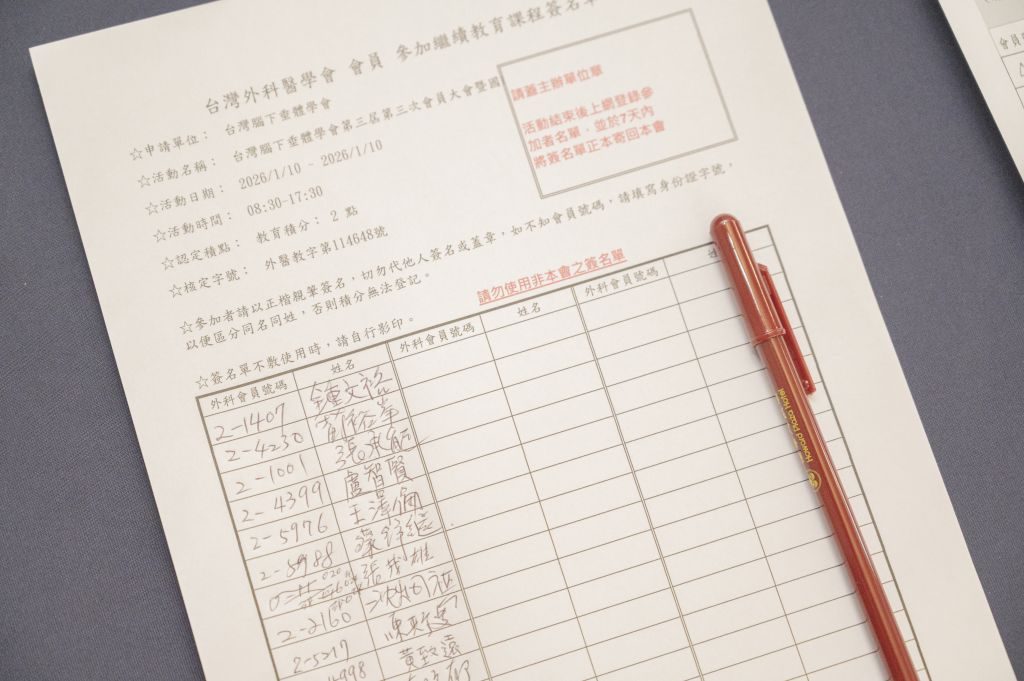 台灣外科醫學會 會員 參加繼續教育課程簽名單
☆申請單位： 台灣腦下垂體學會
☆活動名稱： 台灣腦下垂體學會第三屆第三次會員大會暨國
☆活動日期： 2026/1/10 ~ 2026/1/10
☆活動時間： 08:30-17:30
☆認定積點： 教育積分： 2 點
☆核定字號： 外醫教字第114648號
請蓋主辦單位章
活動結束後上網登錄參
加者名單，並於7天內
將簽名單正本寄回本會
☆參加者請以正楷親筆簽名，切勿代他人簽名或蓋章，如不知會員號碼，請填寫身份證字號，
以便區分同名同姓，否則積分無法登記。
☆簽名單不敷使用時，請自行影印。
請勿使用非本會之簽名單
外科會員號碼 姓名 外科會員號碼 姓名 外科會員號碼 姓
2-1407 鍾文
2-4230
2-1001 張
2-4399 盧智賢
2-5976 王
2-5988
張成雄
2-2160
2-5217 陳
4998 黃致遠
會員
Howard Plaza Hotel